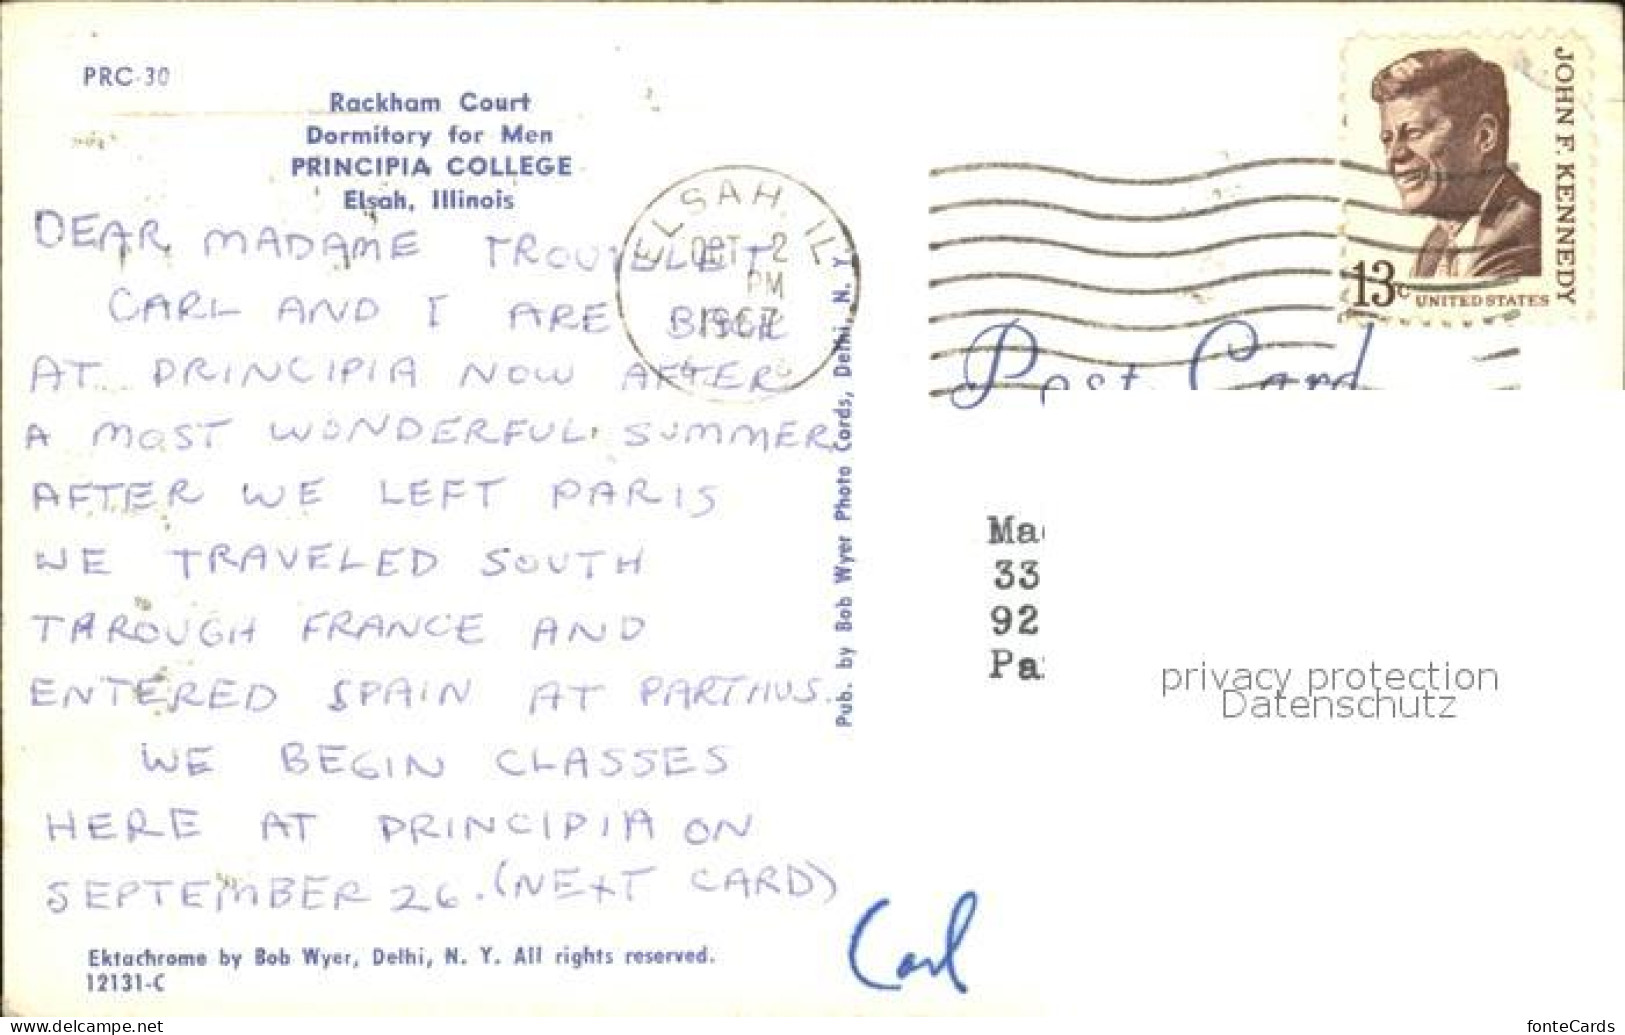 PRC-30
Rackham Court
Dormitory for Men
PRINCIPIA COLLEGE
Elsah, Illinois
DEAR MADAME TROUVELET
CARL AND I ARE BACK
AT PRINCIPIA NOW AFTER
A MOST WONDERFUL SUMMER.
AFTER WE LEFT PARIS
WE TRAVELED SOUTH
THROUGH FRANCE AND
ENTERED SPAIN AT PARTHUS.
WE BEGIN CLASSES
HERE AT PRINCIPIA ON
SEPTEMBER 26. (NEXT CARD)
Ektachrome by Bob Wyer, Delhi, N. Y. All rights reserved.
12131-C
Carl
Pub. by Bob Wyer Photo Cards, Delhi, N. Y.
ELSAH, IL
OCT 2
PM
1967
JOHN F. KENNEDY
13c UNITED STATES
Post Card
Ma
33
92
Pa
privacy protection
Datenschutz
www.delcampe.net
fonteCards